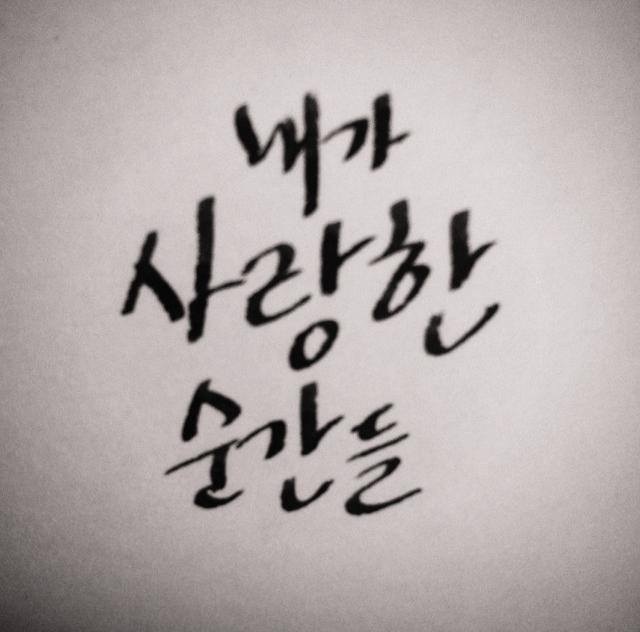 내가
사랑한
순간들